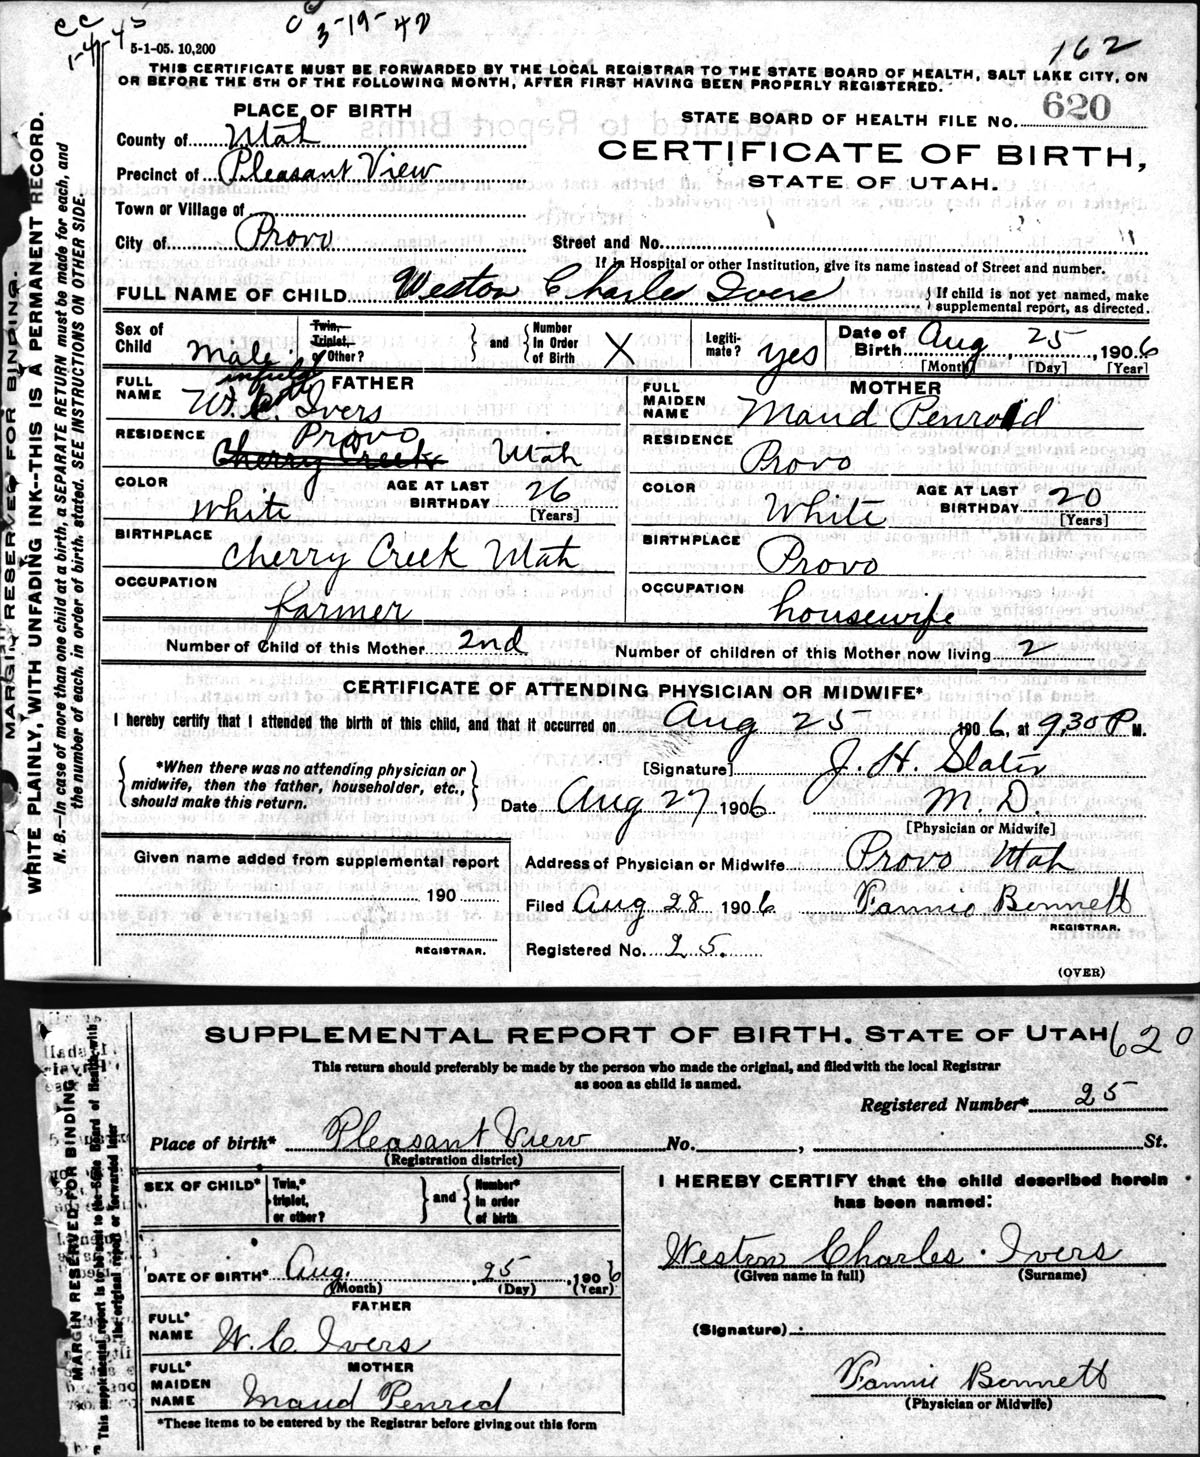 cc
1-4-45
cc 3-19-42
5-1-05. 10,200
162
THIS CERTIFICATE MUST BE FORWARDED BY THE LOCAL REGISTRAR TO THE STATE BOARD OF HEALTH, SALT LAKE CITY, ON
OR BEFORE THE 5TH OF THE FOLLOWING MONTH, AFTER FIRST HAVING BEEN PROPERLY REGISTERED.
PLACE OF BIRTH
STATE BOARD OF HEALTH FILE No. 620
County of Utah
CERTIFICATE OF BIRTH,
STATE OF UTAH.
Precinct of Pleasant View
Town or Village of
City of Provo
Street and No.
If in Hospital or other Institution, give its name instead of Street and number.
FULL NAME OF CHILD Weston Charles Ivers
If child is not yet named, make
supplemental report, as directed.
Sex of Child Male
Twin, Triplet, or Other? and Number in Order of Birth X
Legitimate? yes
Date of Birth Aug, 25, 1906
[Month] [Day] [Year]
FATHER
FULL NAME W. C. Ivers
RESIDENCE Provo
Cherry Creek Utah
COLOR White
AGE AT LAST BIRTHDAY 26
[Years]
BIRTHPLACE Cherry Creek Utah
OCCUPATION farmer
MOTHER
FULL MAIDEN NAME Maud Penrod
RESIDENCE Provo
COLOR White
AGE AT LAST BIRTHDAY 20
[Years]
BIRTHPLACE Provo
OCCUPATION housewife
Number of Child of this Mother 2nd
Number of children of this Mother now living 2
CERTIFICATE OF ATTENDING PHYSICIAN OR MIDWIFE*
I hereby certify that I attended the birth of this child, and that it occurred on Aug 25 1906, at 9,30 P M.
*When there was no attending physician or
midwife, then the father, householder, etc.,
should make this return.
[Signature] J. H. Slater
Date Aug 27 1906 M. D.
[Physician or Midwife]
Given name added from supplemental report
190
REGISTRAR.
Address of Physician or Midwife Provo Utah
Filed Aug 28 1906 Fannie Bennett
REGISTRAR.
Registered No. 25.
(OVER)
MARGIN RESERVED FOR BINDING.
WRITE PLAINLY, WITH UNFADING INK--THIS IS A PERMANENT RECORD.
N. B.--In case of more than one child at a birth, a SEPARATE RETURN must be made for each, and
the number of each, in order of birth, stated. SEE INSTRUCTIONS ON OTHER SIDE.
SUPPLEMENTAL REPORT OF BIRTH. STATE OF UTAH 620
This return should preferably be made by the person who made the original, and filed with the local Registrar
as soon as child is named.
Registered Number* 25
Place of birth* Pleasant View No. , St.
(Registration district)
SEX OF CHILD*
Twin,* triplet, or other? and Number* in order of birth
DATE OF BIRTH* Aug. , 25 , 1906
(Month) (Day) (Year)
FATHER
FULL* NAME W. C. Ivers
MOTHER
FULL* MAIDEN NAME Maud Penrod
*These items to be entered by the Registrar before giving out this form
I HEREBY CERTIFY that the child described herein
has been named:
Weston Charles. Ivers
(Given name in full) (Surname)
(Signature)
Fannie Bennett
(Physician or Midwife)
MARGIN RESERVED FOR BINDING
This supplemental report is to be sent to the State Board of Health with
the original report or forwarded later